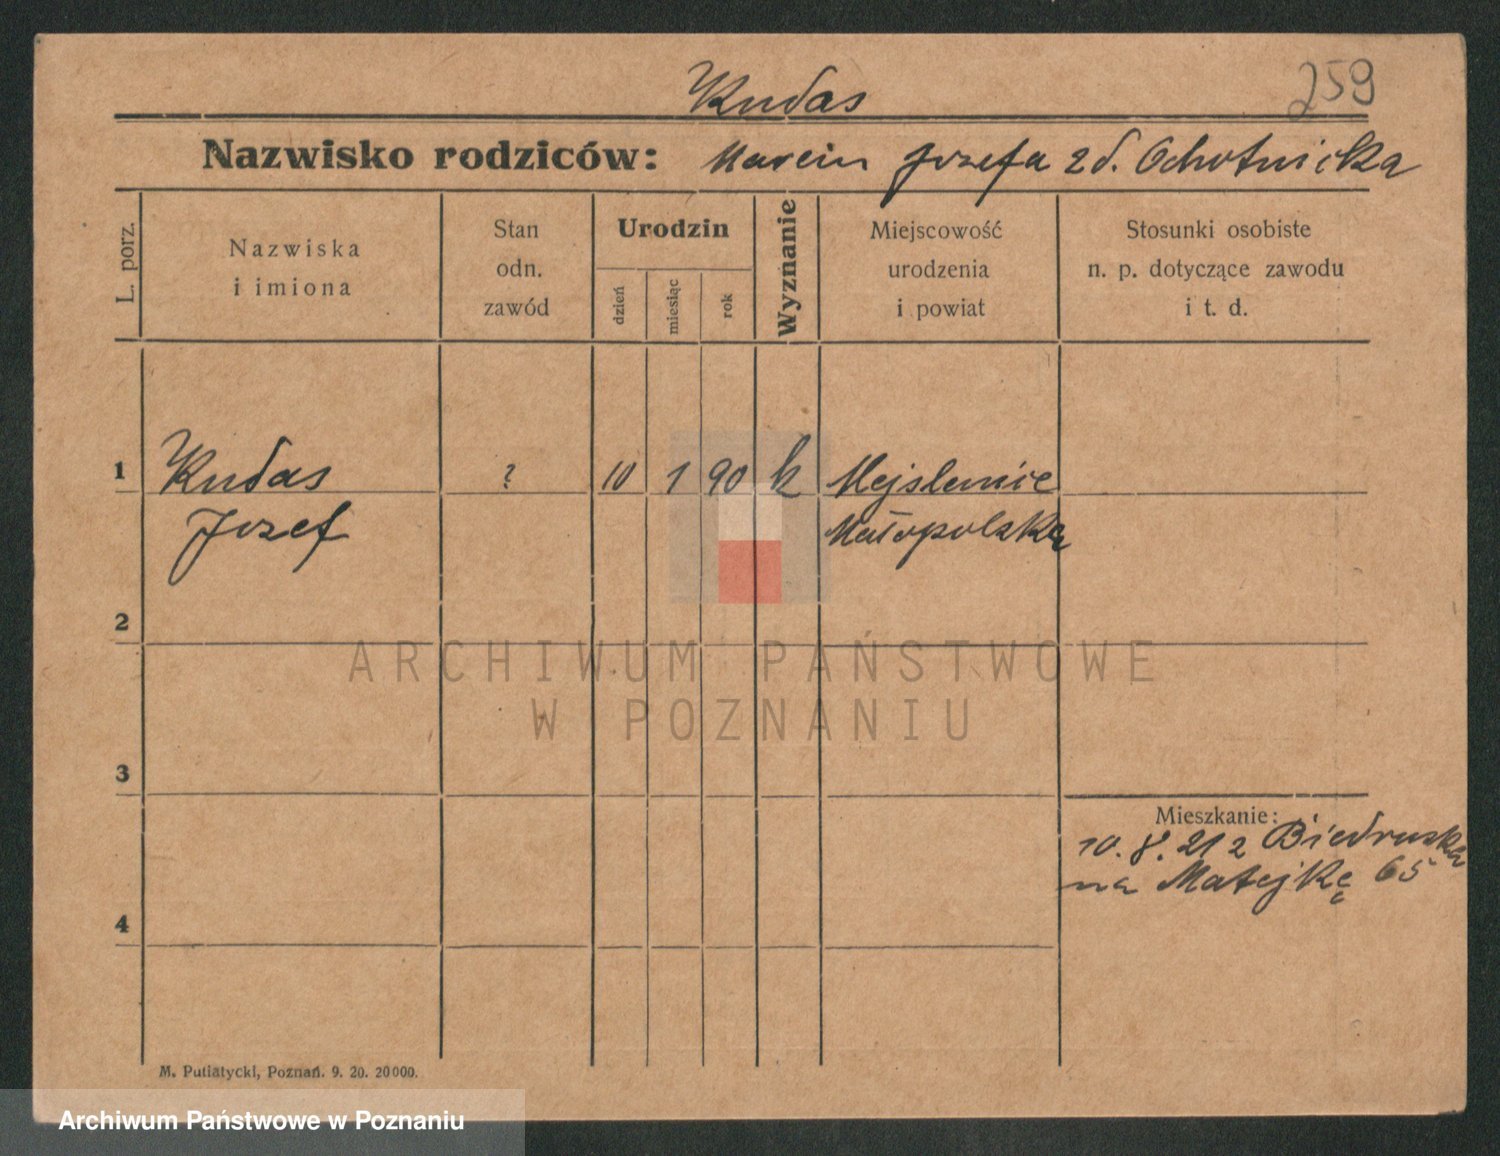 Kudas
259
Nazwisko rodziców: Marcin Jozefa z d. Ochotnicka
L. porz.
Nazwiska
i imiona
Stan
odn.
zawód
Urodzin
dzień
miesiąc
rok
Wyznanie
Miejscowość
urodzenia
i powiat
Stosunki osobiste
n. p. dotyczące zawodu
i t. d.
1 Kudas ? 10 1 90 k Mejslenice
Jozef Małopolska
2
3
4
Mieszkanie:
10. 8. 21 z Biedruska
na Matejkę 65
M. Putiatycki, Poznań. 9. 20. 20000.
ARCHIWUM PAŃSTWOWE
W POZNANIU
Archiwum Państwowe w Poznaniu